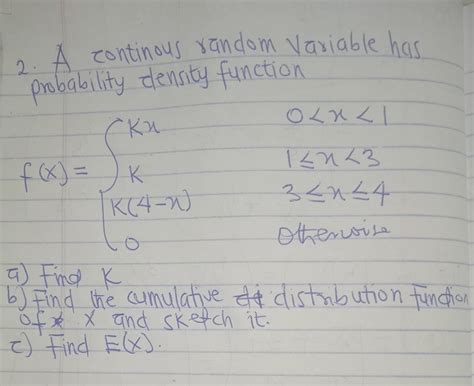 2. A continous random variable has
probability density function
f(x) = { Kx 0<x<1
K 1≤x<3
K(4-x) 3≤x≤4
0 Otherwise
a) Find K
b) Find the cumulative distribution function
of X and sketch it.
c) Find E(X).